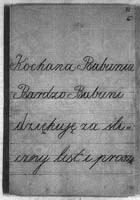 Kochana Babuniu
Bardzo Babuni
dziękuję za śli-
czny list i proszę